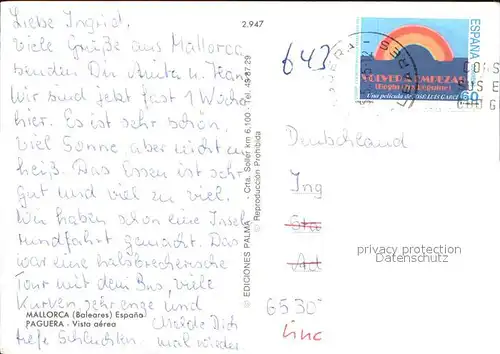 Liebe Ingrid,
Viele Grüße aus Mallorca
senden Dir Anita u. Hans
Wir sind jetzt fast 1 Woche
hier. Es ist sehr schön,
viel Sonne, aber nicht zu
heiß. Das Essen ist sehr
gut und viel zu viel.
Wir haben schon eine Insel
rundfahrt gemacht. Das
war eine halsbrecherische
Tour mit dem Bus, viele
Kurven, sehr enge und
MALLORCA (Baleares) España
PAGUERA - Vista aérea
tiefe Schluchten.
Melde Dich
mal wieder
2.947
© EDICIONES PALMA - Crta. Soller km 6,100 - Tel. 45 87 29
© Reproducción Prohibida
643
ESPAÑA
VOLVER A EMPEZAR
(Begin the Beguine)
Una película de JOSÉ LUIS GARCI
60
CONS
Deutschland
Ing
privacy protection
Datenschutz
6530